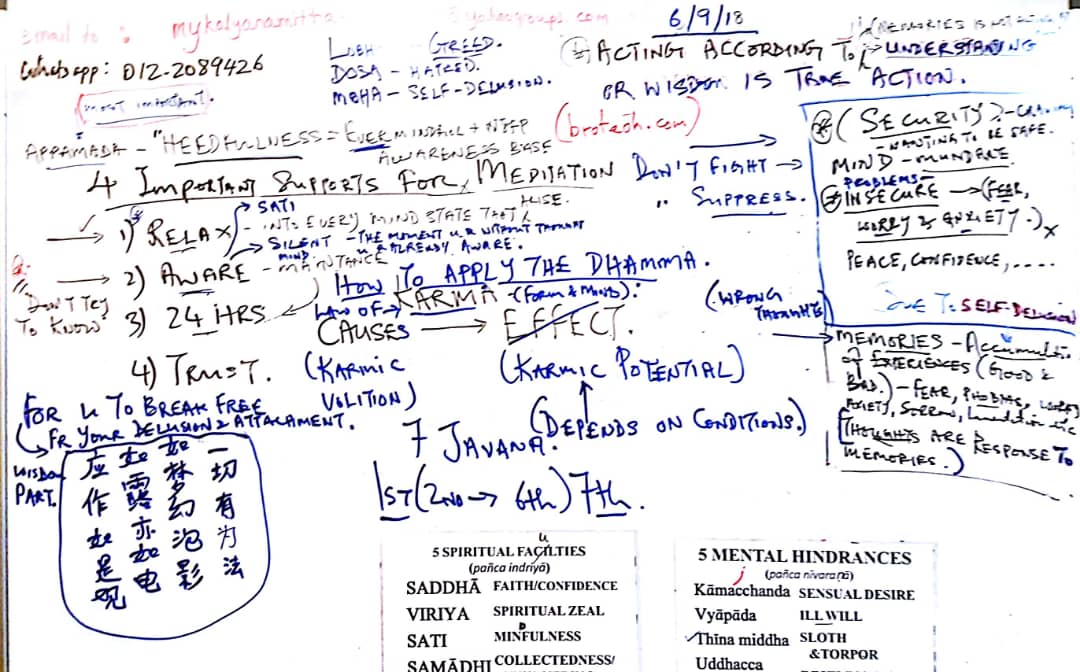 Email to : mykalyanamitta @yahoogroups.com
Whatsapp: 012-2089426
(most important).
LOBH - GREED.
DOSA - HATRED.
MOHA - SELF-DELUSION.
6/9/18
(MEMORIES IS NOT
ACTING ACCORDING TO UNDERSTANDING
OR WISDOM IS TRUE ACTION.
APPAMADA - "HEEDFULLNESS = EVER MINDFUL +
AWARENESS BASE
(broteoh.com)
4 IMPORTANT SUPPORTS FOR MEDITATION
DON'T FIGHT →
" SUPPRESS.
→ 1) RELAX
→ SATI - INTO EVERY MIND STATE THAT
ARISE.
→ SILENT MIND - THE MOMENT U R WITHOUT THOUGHT
U R ALREADY AWARE.
→ 2) AWARE - MAINTANCE
DON'T TRY
TO KNOW
3) 24 HRS
4) TRUST.
HOW TO APPLY THE DHAMMA.
LAW OF → KARMA - (FORM & MIND):
CAUSES → EFFECT.
(KARMIC VOLITION)
(KARMIC POTENTIAL)
(DEPENDS ON CONDITIONS.)
7 JAVANA.
1ST (2ND → 6th) 7th.
(SECURITY) - CRAVING
- WANTING TO BE SAFE.
MIND - MUNDANE
PROBLEMS -
INSECURE → (FEAR,
WORRY & ANXIETY.) x
PEACE, CONFIDENCE, ....
DUE TO SELF-DELUSION
(WRONG
THOUGHTS)
→ MEMORIES - Accumulation
OF EXPERIENCES (GOOD &
BAD.) - FEAR, PHOBIAS, WORRY
ANXIETY, SORROW, Lamentation etc
[THOUGHTS ARE RESPONSE TO
MEMORIES.)
FOR U TO BREAK FREE
FR YOUR DELUSION & ATTACHMENT.
WISDOM
PART.
一切有为法
如梦幻泡影
如露亦如电
应作如是观
5 SPIRITUAL FACILTIES
u
(pañca indriyā)
SADDHĀ FAITH/CONFIDENCE
VIRIYA SPIRITUAL ZEAL
SATI MINFULNESS
D
SAMĀDHI COLLECTEDNESS/
5 MENTAL HINDRANCES
(pañca nīvaraṇā)
Kāmacchanda SENSUAL DESIRE
Vyāpāda ILL WILL
✓Thīna middha SLOTH
&TORPOR
Uddhacca